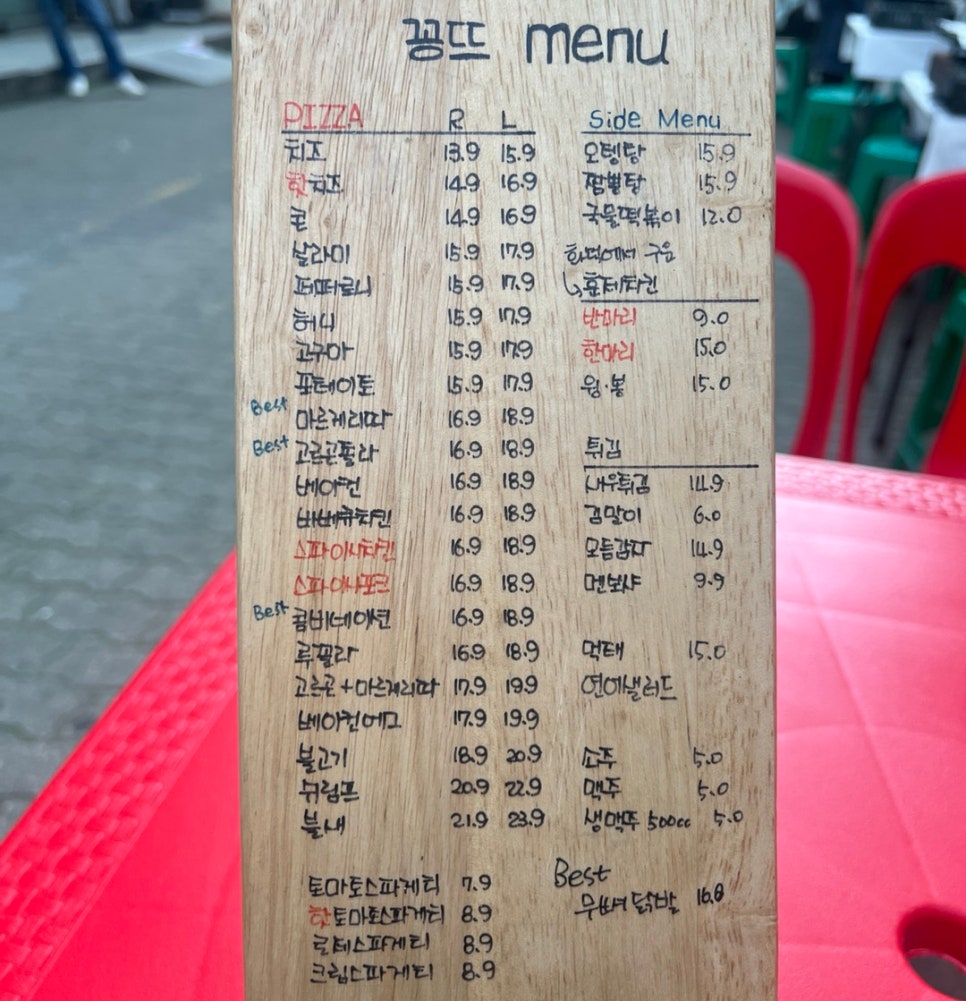 꽁뜨 menu
PIZZA R L
치즈 13.9 15.9
핫치즈 14.9 16.9
콘 14.9 16.9
살라미 15.9 17.9
페퍼로니 15.9 17.9
허니 15.9 17.9
고구마 15.9 17.9
포테이토 15.9 17.9
Best 마르게리따 16.9 18.9
Best 고르곤졸라 16.9 18.9
베이컨 16.9 18.9
바베큐치킨 16.9 18.9
스파이시치킨 16.9 18.9
스파이시포크 16.9 18.9
Best 콤비네이션 16.9 18.9
루꼴라 16.9 18.9
고르곤+마르게리따 17.9 19.9
베이컨에그 17.9 19.9
불고기 18.9 20.9
쉬림프 20.9 22.9
불새 21.9 23.9
토마토스파게티 7.9
핫토마토스파게티 8.9
로제스파게티 8.9
크림스파게티 8.9
Side Menu
오뎅탕 15.9
짬뽕탕 15.9
국물떡볶이 12.0
화덕에서 구운
↳훈제치킨
반마리 9.0
한마리 15.0
윙·봉 15.0
튀김
새우튀김 14.9
김말이 6.0
모듬감자 14.9
멘보샤 9.9
먹태 15.0
연어샐러드
소주 5.0
맥주 5.0
생맥주 500cc 5.0
Best
무뼈 닭발